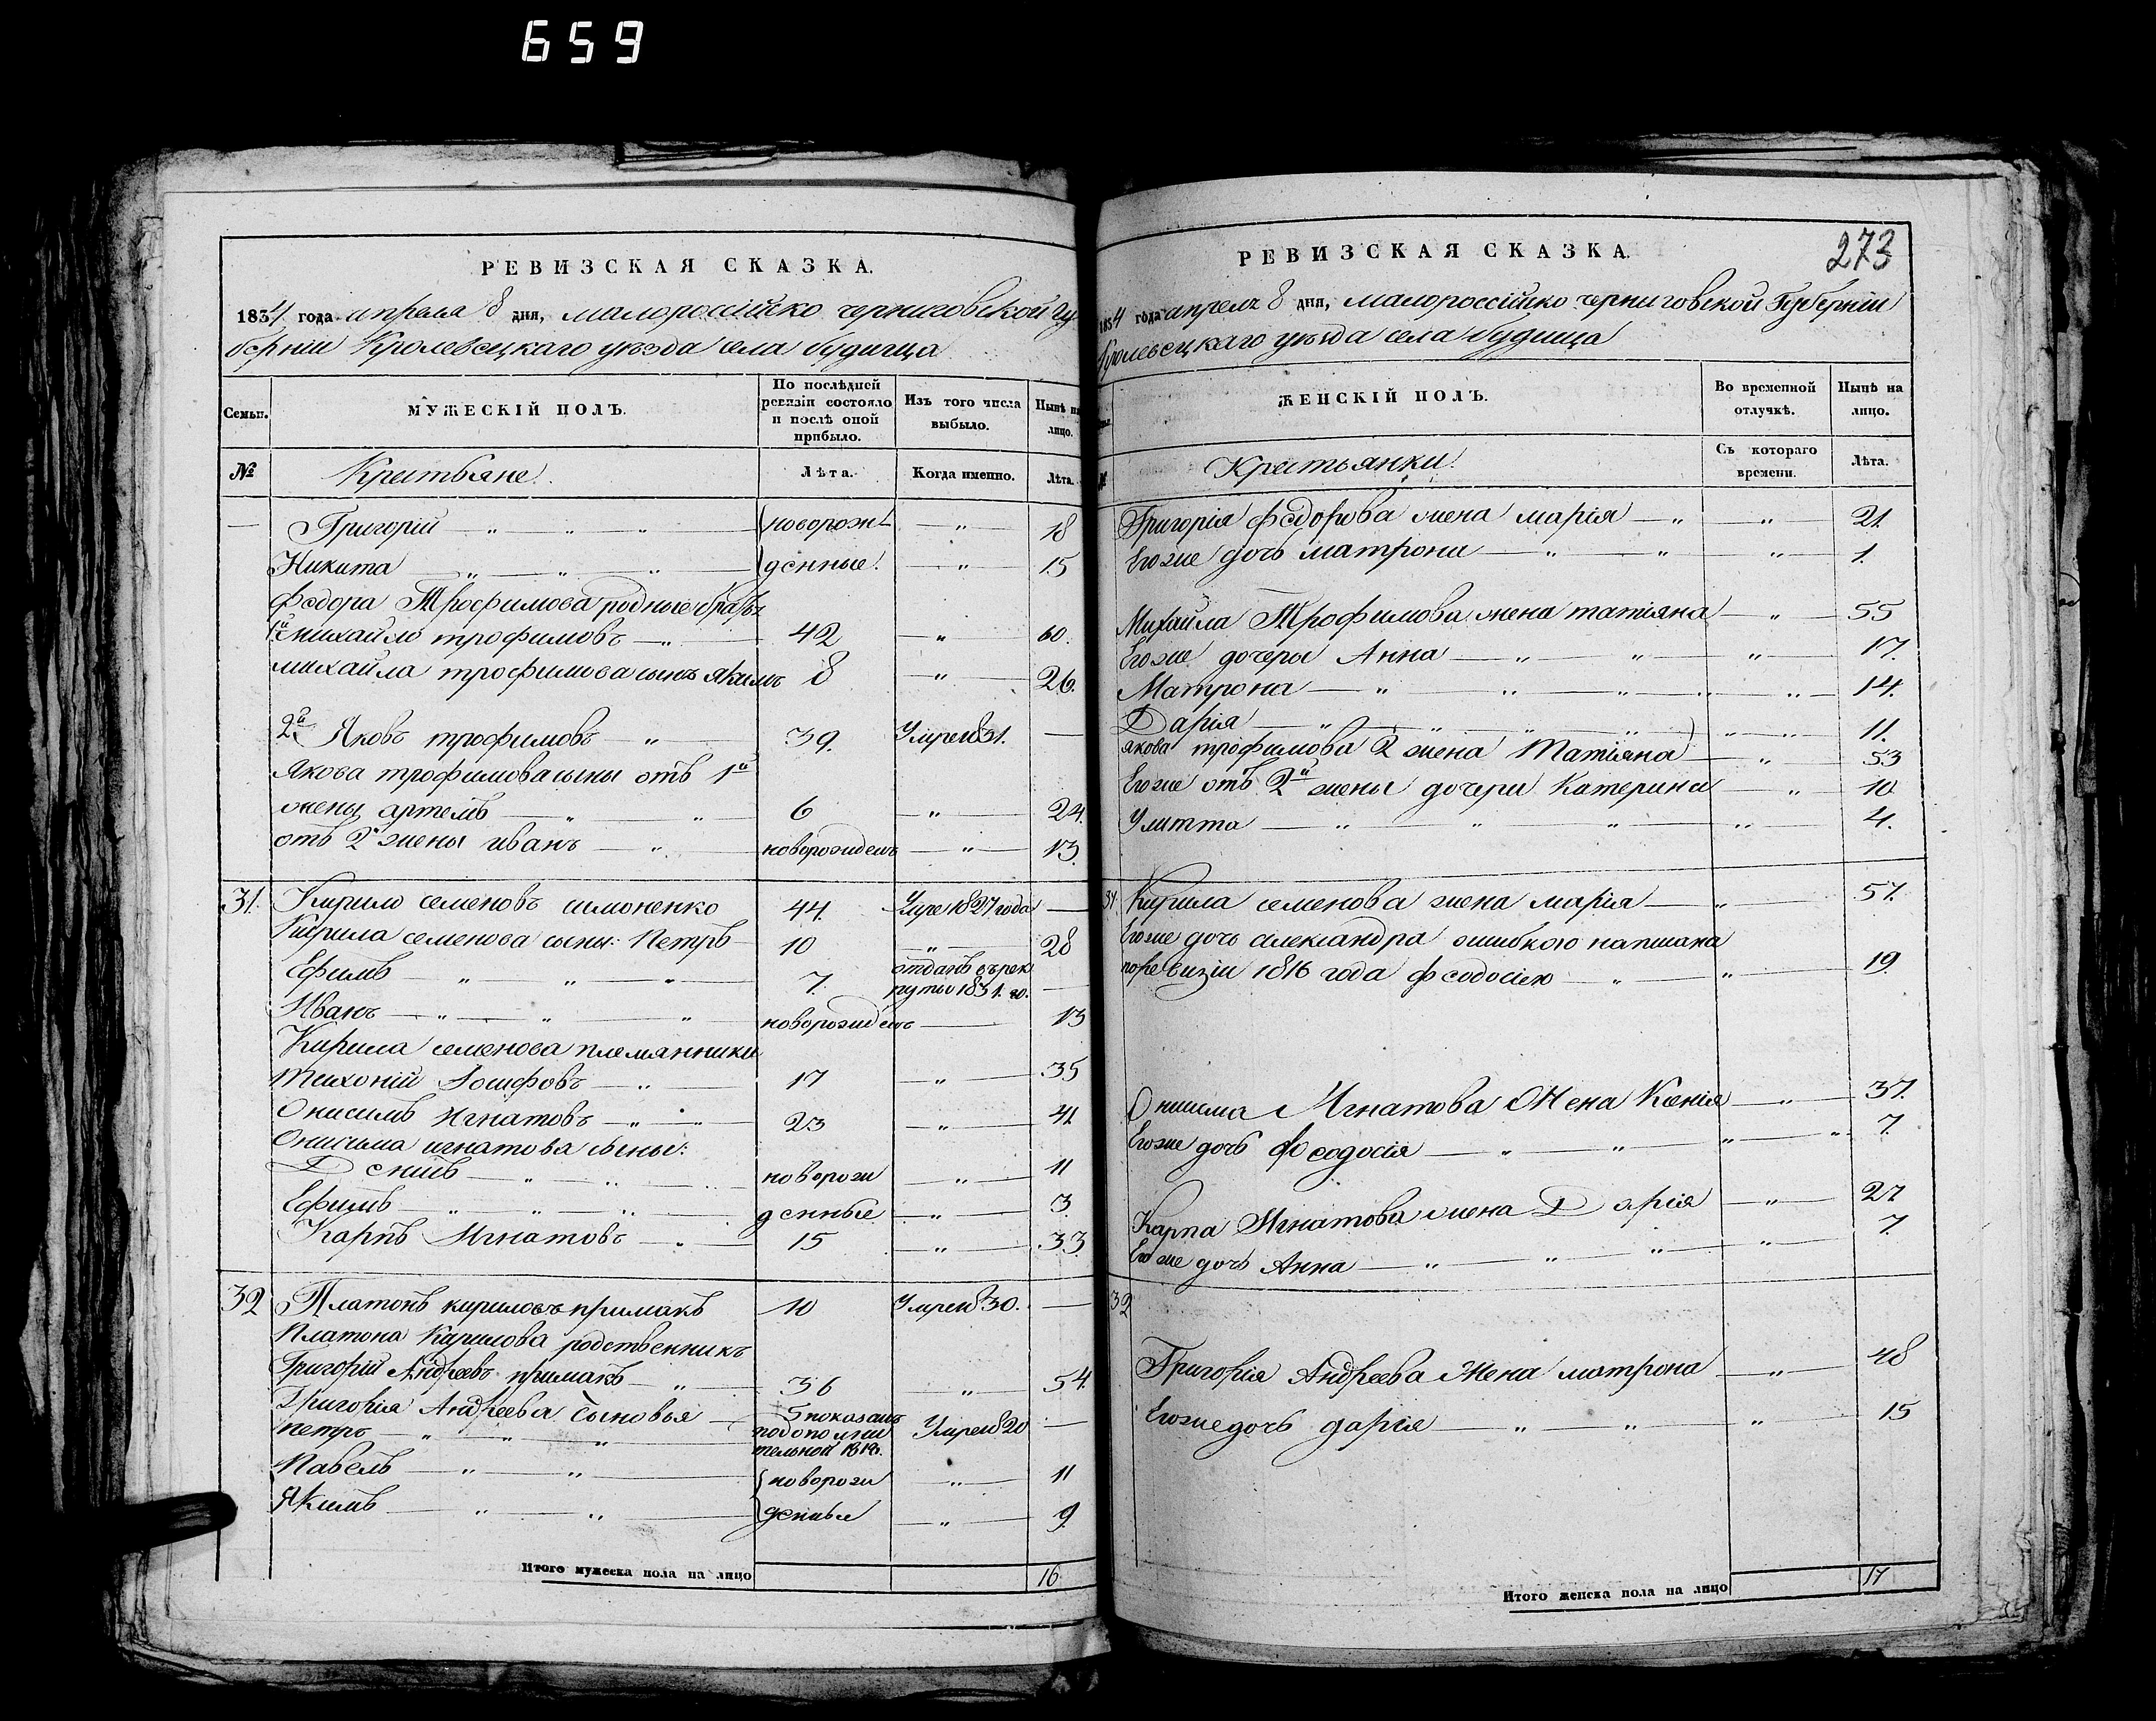 659
РЕВИЗСКАЯ СКАЗКА.
1834 года апреля 8 дня, малороссійско черниговской гу
берніи Кролевецкаго уезда села будища
Семьи.
МУЖЕСКІЙ ПОЛЪ.
По послѣдней
ревизіи состояло
и послѣ оной
прибыло.
Изъ того числа
выбыло.
Нынѣ на
лицо.
№
Крестьяне.
Лѣта.
Когда именно.
Лѣта.
— Григорій — „ — „ — „ — (новорож — „ — 18
Никита — „ — „ — „ — )денные. — „ — 15
федора Трофимова родные братья
1й михайло трофимовъ — „ — 42 — „ — 60.
михайла трофимова сынъ якимъ 8 — „ — 26.
2й Яковъ трофимовъ — „ — 39. Умре 831. —
якова трофимова сыны отъ 1й
жены артемъ — „ — „ — 6 — „ — 24.
отъ 2й жены иванъ — „ — новорожденъ — „ — 13.
31. Кирило семеновъ симоненко 44. Умре 1827 года —
Кирила семенова сыны: Петръ — 10 — „ — 28
Ефимъ — „ — „ — „ — 7. отданъ въ рек
руты 1831. го. —
Иванъ — „ — „ — „ — новорожденъ — 13
Кирила семенова племянники
Тихоній Іосифовъ — „ — 17 — „ — 35
Онисимъ Игнатовъ — „ — „ — 23 — „ — 41
Онисима игнатова сыны:
Денисъ — „ — „ — „ — новорож — „ — 11
Ефимъ — „ — „ — „ — денные — „ — 3.
Карпъ Игнатовъ — „ — 15 — „ — 33
32 Платонъ кириловъ примакъ 10 Умре 830. —
Платона Кирилова родственникъ
Григорій Андреевъ примакъ — „ — 36 — „ — 54.
Григорія Андреева сыновья — 5 показанъ
петръ — „ — „ — „ — по дополни Умре 820 —
тельной 1818.
Павелъ — „ — „ — (новорож — „ — 11
Якимъ — „ — „ — )денные — „ — 9.
Итого мужеска пола на лицо 16
РЕВИЗСКАЯ СКАЗКА.
273
1834 года апреля 8 дня, малороссійско черниговской Губерніи
Кролевецкаго уезда села будища
ЖЕНСКІЙ ПОЛЪ.
Во временной
отлучкѣ.
Нынѣ на
лицо.
№
Крестьянки.
Съ котораго
времени.
Лѣта.
Григорія федорова жена марія — „ — „ — 21.
Егоже дочь матрона — „ — „ — „ — 1.
Михайла Трофимова жена татіяна — „ — 55
Егоже дочеры Анна — „ — „ — „ — 17.
Матрона — „ — „ — „ — „ — 14.
Дарія — „ — „ — „ — „ — 11.
якова трофимова 2 жена Татіяна — „ — 53
Егоже отъ 2й жены дочери Катерина — „ — 10
Улитта — „ — „ — „ — „ — 4.
31. Кирила семенова жена марія — „ — 57.
Егоже дочь александра ошибкою написана
по ревизіи 1816 года феодосіею — „ — „ — 19.
Онисима Игнатова Жена Ксенія — „ — 37.
Егоже дочь феодосія — „ — „ — „ — „ 7.
Карпа Игнатова жена Дарія — „ — 27
Егоже дочь Анна — „ — „ — „ — „ — 7.
32
Григорія Андреева Жена матрона — „ — 48
Егоже дочь дарія — „ — „ — „ — 15
Итого женска пола на лицо 17